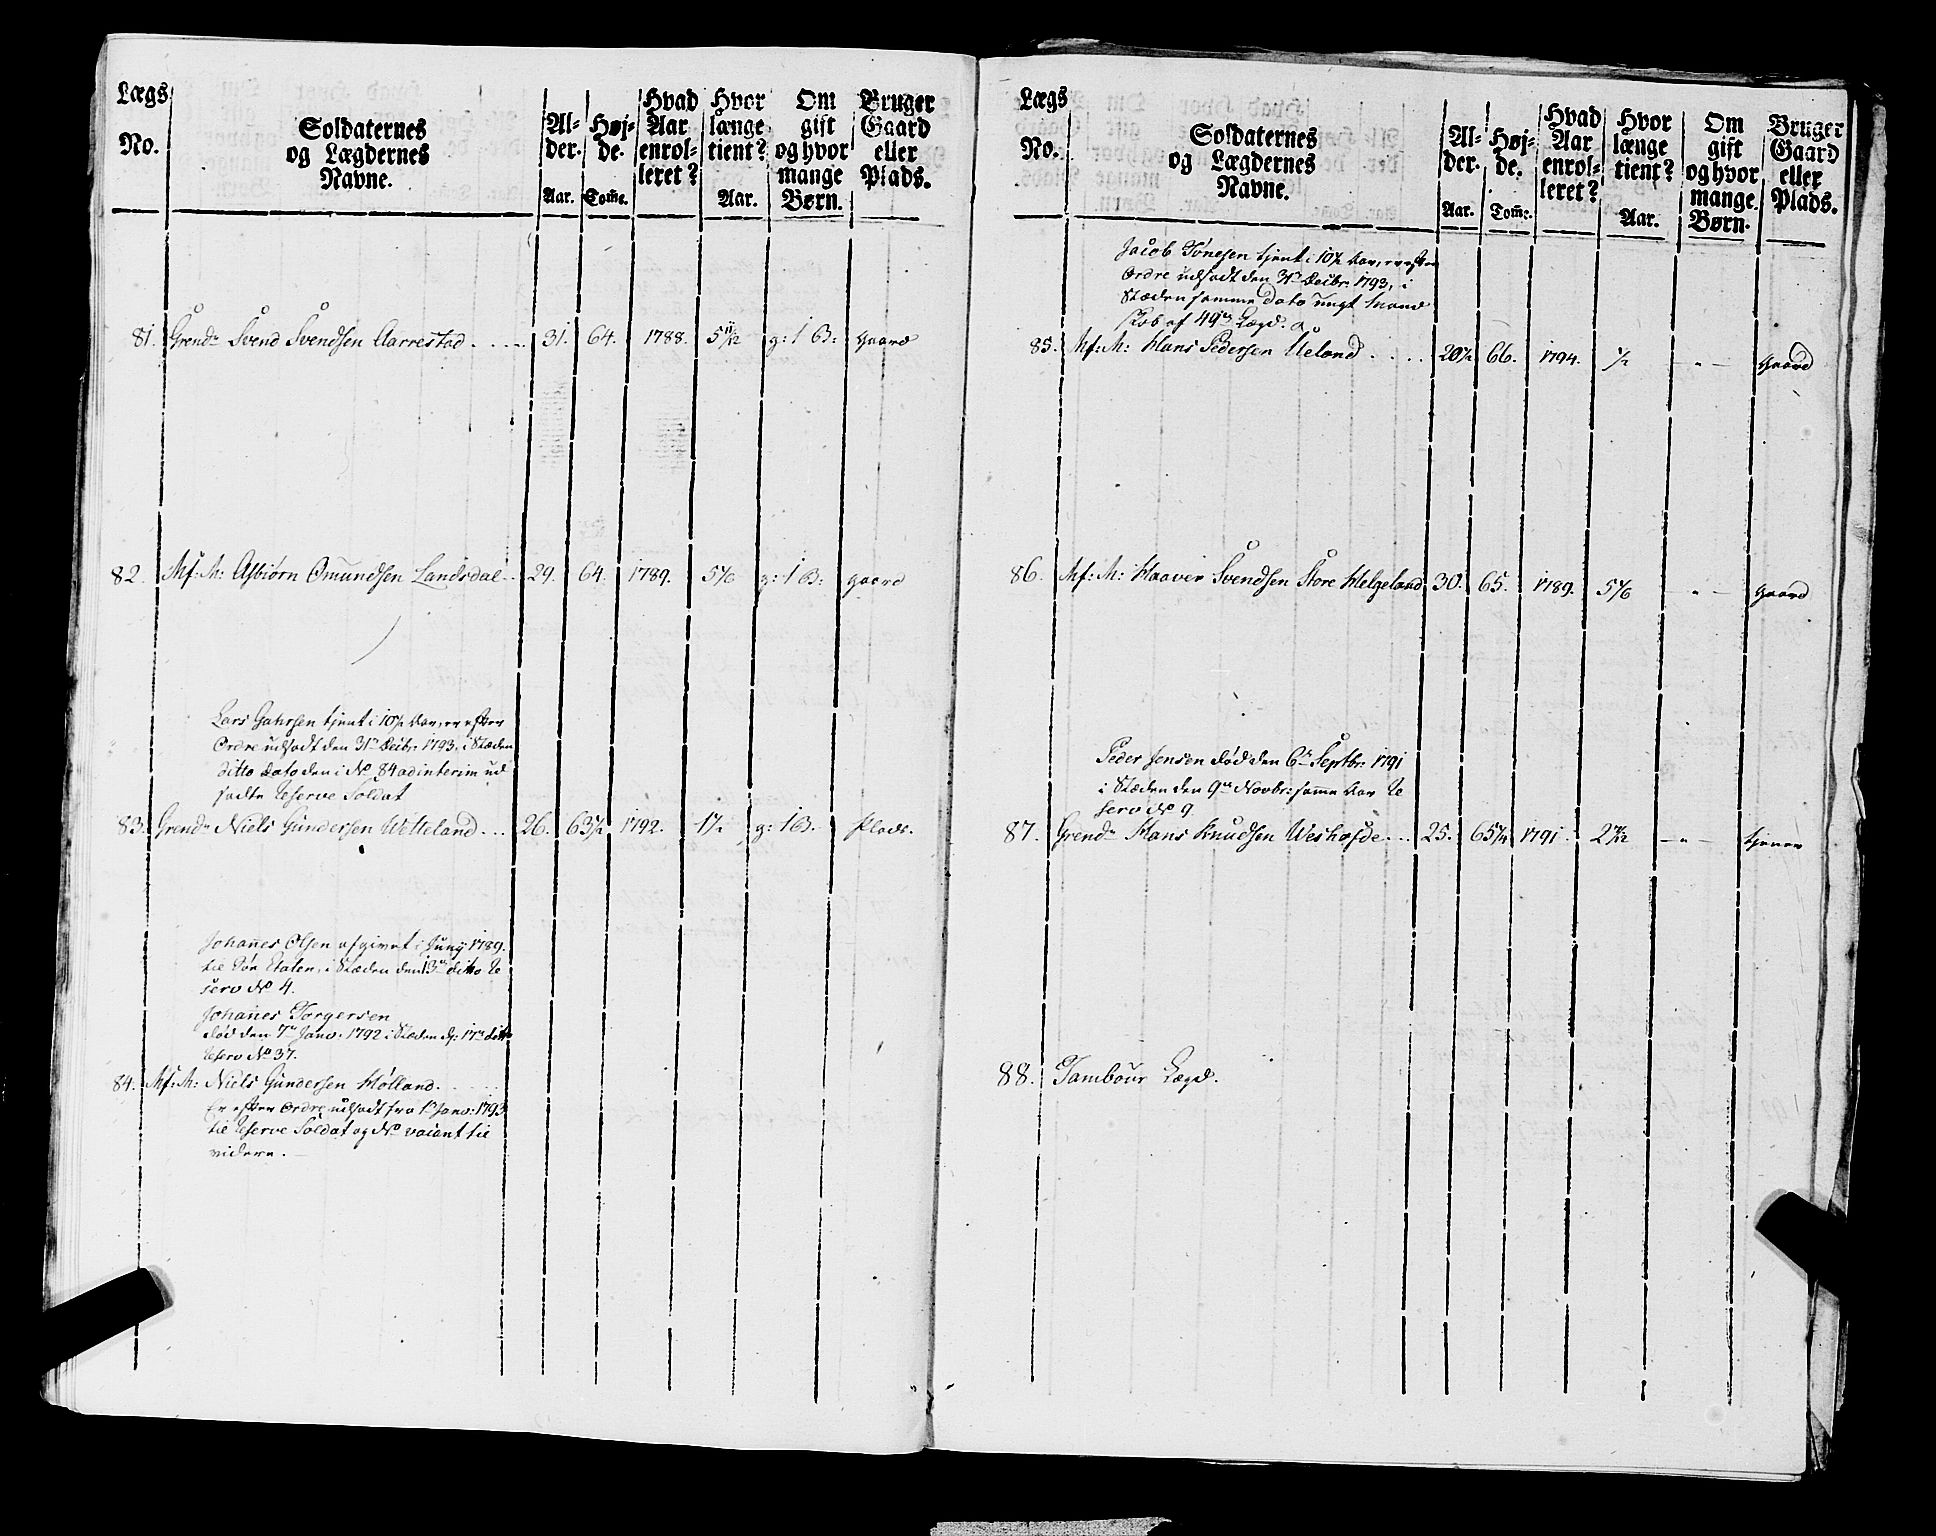 Lægs No. | Soldaternes og Lægdernes Navne. | Alder. Aar. | Højde. Tom̃e. | Hvad Aar enrolleret? | Hvor længe tient? Aar. | Om gift og hvor mange Børn. | Bruger Gaard eller Plads.
81. Grend: Svend Svendsen Aarrestad . . . . 31. 64. 1788. 5 11/12 g: 1 B: gaard
82. Mf: A: Asbiørn Omundsen Landsdal . . 29. 64. 1789. 5 g: 1 B: gaard
Lars Gahrsen tjent i 10½ Aar, er efter
Ordre udsadt den 31te Decbr: 1793, i Stæden
ditto dato den i No 84 ad interim ud
sadte Reserve Soldat
83. Grend: Niels Gundersen Wetteland . . . 26. 63½ 1792. 1½ g: 1 B. plads.
Johanes Olsen afgivet i Juny 1789.
til Søe Etaten, i Stæden den 13de ditto Re
serv No 4.
Johanes Torgersen
død den 7de Janv: 1792 i Stæden d: 17de ditto
Reserv No 37.
84. Mf: A: Niels Gundersen Hølland. . . .
Er efter Ordre udsadt fra 1te Janv: 1793
til Reserve Soldat og No vacant til
videre. —
Lægs No. | Soldaternes og Lægdernes Navne. | Alder. Aar. | Højde. Tom̃e. | Hvad Aar enrolleret? | Hvor længe tient? Aar. | Om gift og hvor mange Børn. | Bruger Gaard eller Plads.
Jacob Tønesen tjent i 10½ Aar, er efter
Ordre udsadt den 31te Decbr: 1793, i
Stæden samme dato ungt Mand
skab af 49de Lægd.
85. Mf: A: Hans Pedersen Ueland . . . . 20½ 66. 1794. ½ — " — gaard
86. Mf: A: Haaver Svendsen Store Helgeland 30. 65. 1789. 5 — " — gaard
Peder Jensen død den 6te Septbr: 1791
i Stæden den 9de Novbr: samme Aar Re
serv No 9.
87. Grend: Hans Knudsen Weshofde . . . 25. 65¼ 1791. 2 — " — tjener
88. Tambour Lægd.